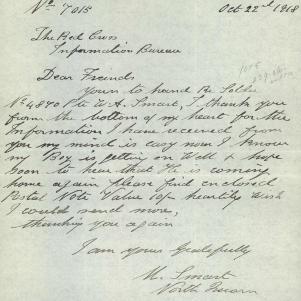 No 7015 Oct 22nd 1918
The Red Cross
Information Bureau
Dear Friends
Yours to hand Re Soldier
No 4840 Pte W. A. Smart, I thank you
from the bottom of my heart for the
Information I have received from
you my mind is easy now I know
my Boy is getting on Well & hope
soon to hear that He is coming
home again please find enclosed
Postal Note Value 10/- heartily wish
I could send more,
thanking you again
I am yours Gratefully
M. Smart
North